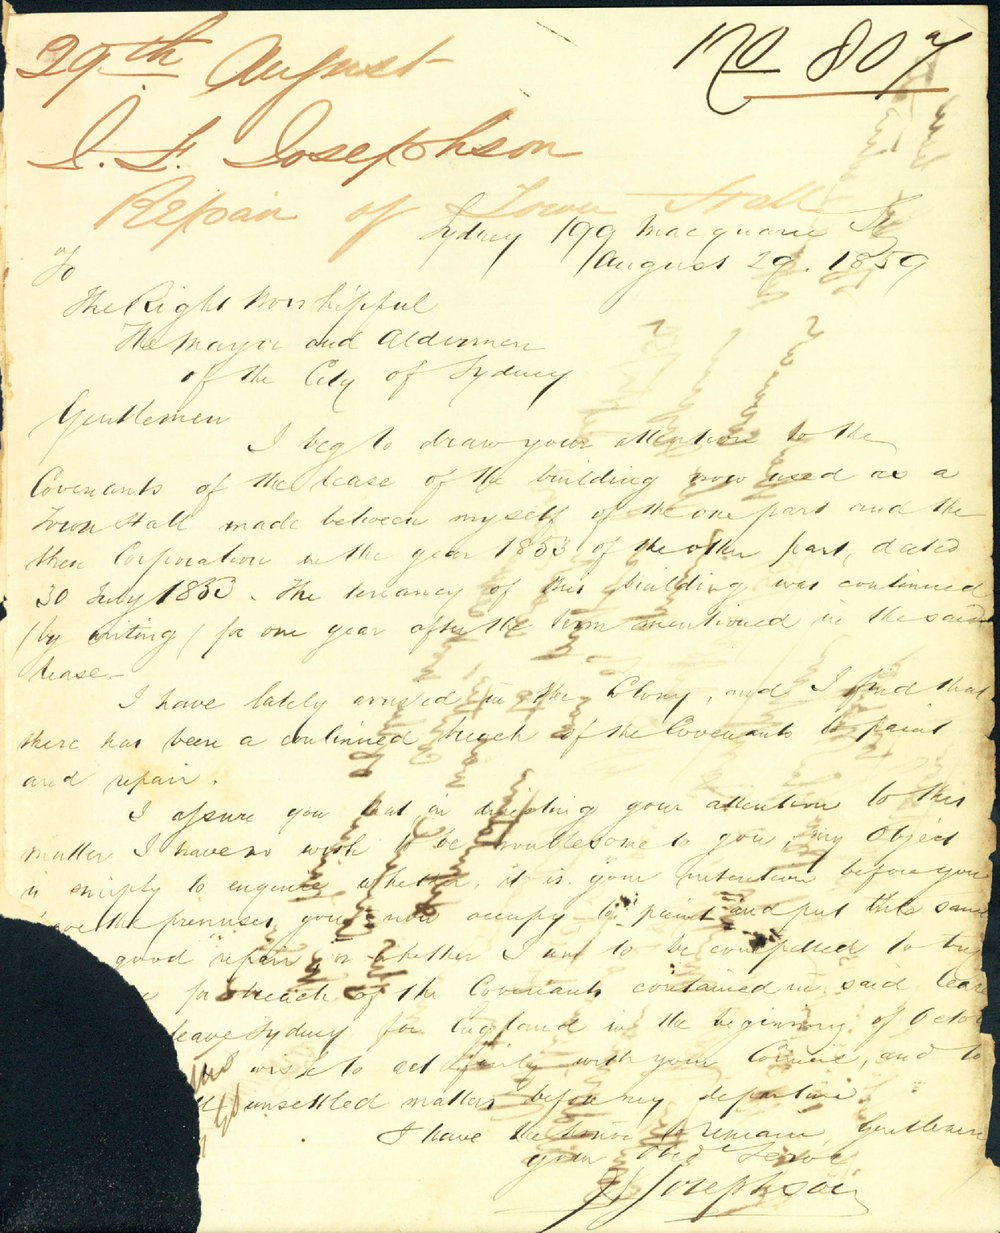 29th August
No 807
J. F. Josephson
Repair of Town Hall
Sydney 199 Macquarie St
August 29. 1859
To
The Right Worshipful
The Mayor and Aldermen
of the City of Sydney
Gentlemen
I beg to draw your attention to the
Covenants of the Lease of the building now used as a
Town Hall made between myself of the one part and the
then Corporation in the year 1853 of the other part, dated
30 July 1853. The tenancy of this building was continued
(by writing) for one year after the term mentioned in the said
lease.
I have lately arrived in the Colony, and I find that
there has been a continued breach of the Covenants to paint
and repair.
I assure you that in directing your attention to this
matter I have no wish to be troublesome to you, my object
is simply to enquire whether, it is your intention before you
the premises you now occupy to paint and put the same
good repair or whether I am to be compelled to
for breach of the Covenants contained in said lease
leave Sydney for England in the beginning of Octo
wish to act fairly with your Council, and to
unsettled matters before my departure.
I have the honor to remain, Gentlemen
your Obed Servt
J F Josephson